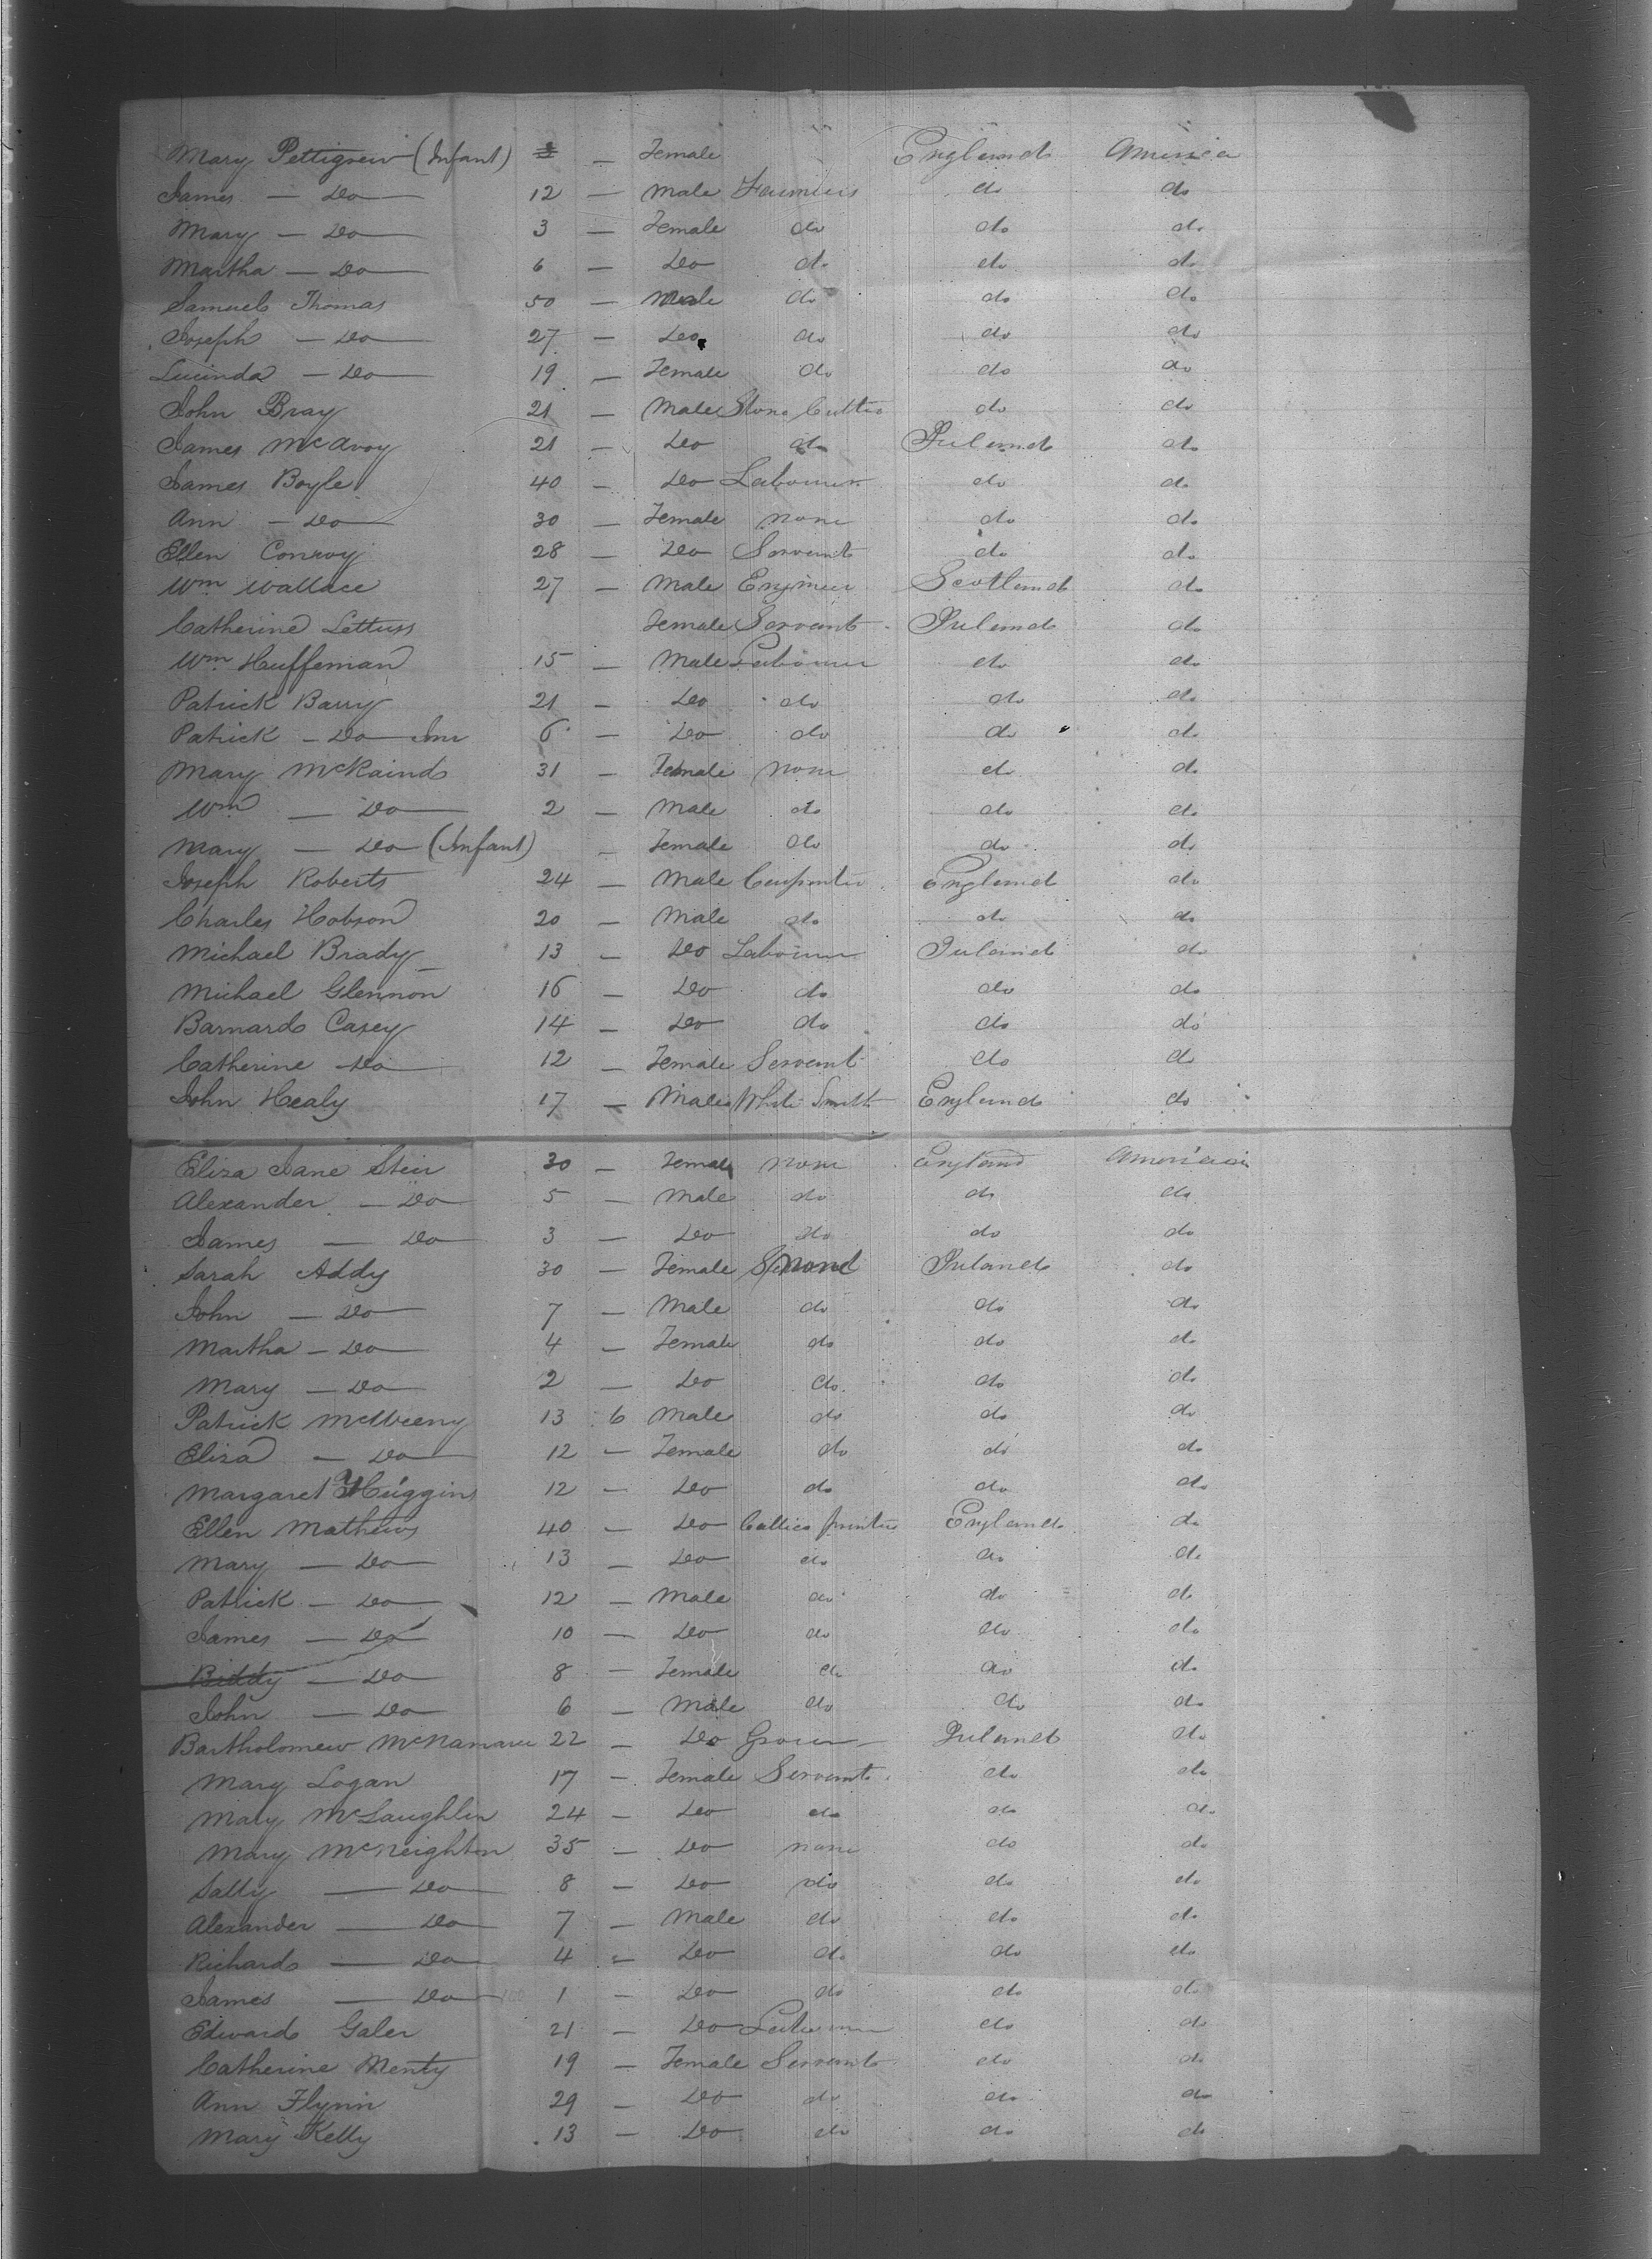 Mary Pettigrew (Infant) — Female England America
James — Do 12 — Male Farmers do do
Mary — Do 3 — Female do do do
Martha — Do 6 — Do do do do
Samuel Thomas 50 — Male do do do
Joseph — Do 27 — Do do do do
Lucinda — Do 19 — Female do do do
John Bray 21 — Male Stone Cutter do do
James McAvoy 21 — Do do Ireland do
James Boyle 40 — Do Labourer do do
Ann — Do 30 — Female none do do
Ellen Conroy 28 — Do Servant do do
Wm Wallace 27 — Male Engineer Scotland do
Catherine Female Servant Ireland do
Wm Huffernan 15 — Male Labourer do do
Patrick Barry 21 — Do do do do
Patrick — Do Jnr 6 — Do do do do
Mary McKaind 31 — Female none do do
Wm — Do 2 — Male do do do
Mary — Do (Infant) — Female do do do
Joseph Roberts 24 — Male Carpenter England do
Charles Hobson 20 — Male do do do
Michael Brady 13 — Do Labourer Ireland do
Michael Glennon 16 — Do do do do
Barnard Casey 14 — Do do do do
Catherine Do 12 — Female Servant do do
John Healy 17 — Male White Smith England do
Eliza Jane Steir 30 — Female none England American
Alexander — Do 5 — Male do do do
James — Do 3 — Do do do do
Sarah Addy 30 — Female none Ireland do
John — Do 7 — Male do do do
Martha — Do 4 — Female do do do
Mary — Do 2 — Do do do do
Patrick 13 6 Male do do do
Eliza — Do 12 — Female do do do
Margaret Huggins 12 — Do do do do
Ellen Mathews 40 — Do Callico printer England do
Mary — Do 13 — Do do do do
Patrick — Do 12 — Male do do do
James — Do 10 — Do do do do
Biddy — Do 8 — Female do do do
John — Do 6 — Male do do do
Bartholomew McNamara 22 — Do Grocer Ireland do
Mary Logan 17 — Female Servant do do
Mary McLaughlin 24 — Do do do do
Mary McNeighton 35 — Do none do do
Sally — Do 8 — Do do do do
Alexander — Do 7 — Male do do do
Richard — Do 4 — Do do do do
James — Do 1 — Do do do do
Edward Galer 21 — Do Labourer do do
Catherine Menty 19 — Female Servant do do
Ann Flynn 29 — Do do do do
Mary Kelly 13 — Do do do do